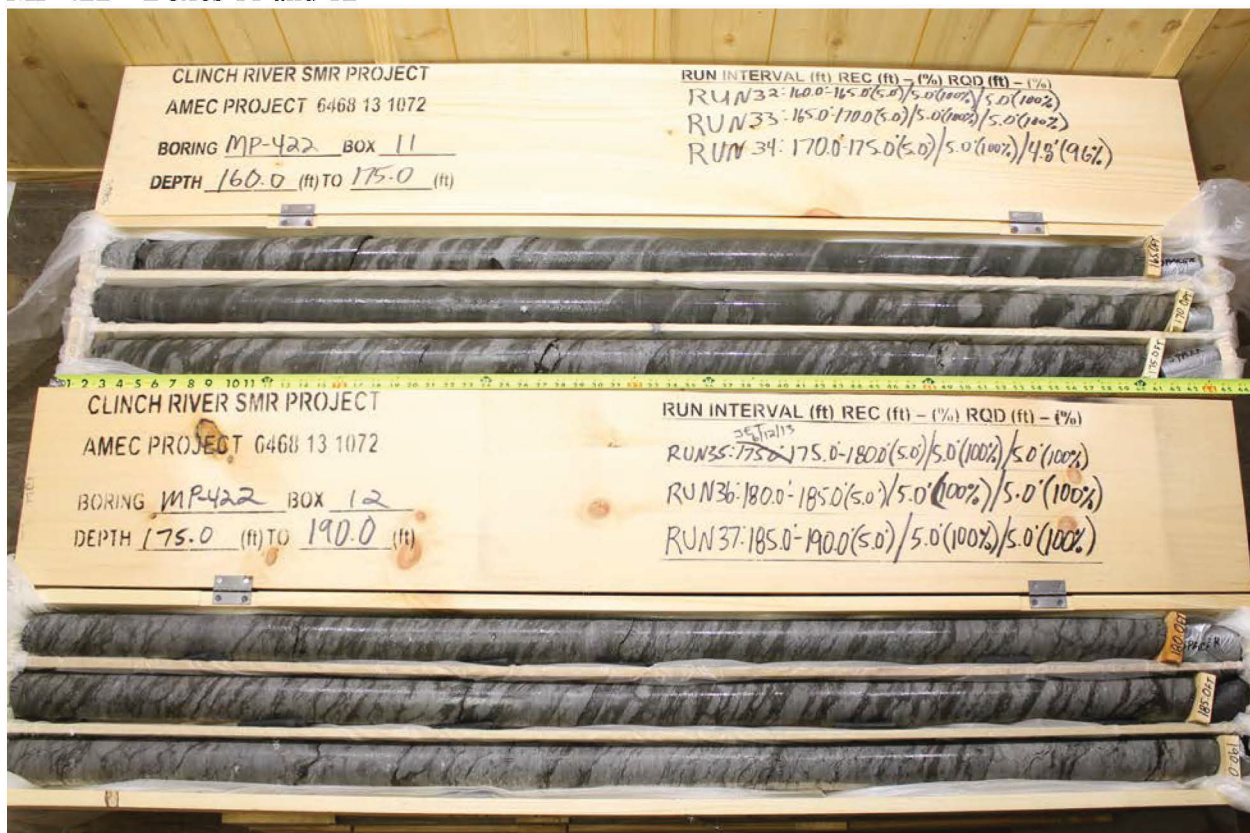 CLINCH RIVER SMR PROJECT
AMEC PROJECT 6468 13 1072
BORING MP-422 BOX 11
DEPTH 160.0 (ft) TO 175.0 (ft)
RUN INTERVAL (ft) REC (ft) – (%) RQD (ft) – (%)
RUN32: 160.0'-165.0'(5.0)/5.0'(100%)/5.0'(100%)
RUN33: 165.0'-170.0'(5.0)/5.0'(100%)/5.0'(100%)
RUN 34: 170.0'-175.0'(5.0)/5.0'(100%)/4.8'(96%)
165.0FT
SPACER
170.0FT
175.0FT
1 2 3 4 5 6 7 8 9 10 11
CLINCH RIVER SMR PROJECT
AMEC PROJECT 6468 13 1072
BORING MP-422 BOX 12
DEPTH 175.0 (ft) TO 190.0 (ft)
RUN INTERVAL (ft) REC (ft) – (%) RQD (ft) – (%)
JET 6/12/13
RUN35: 175.0' 175.0'-180.0'(5.0')/5.0'(100%)/5.0'(100%)
RUN36: 180.0'-185.0'(5.0')/5.0'(100%)/5.0'(100%)
RUN37: 185.0'-190.0'(5.0')/5.0'(100%)/5.0'(100%)
180.0FT
SPACER
185.0FT
190.0